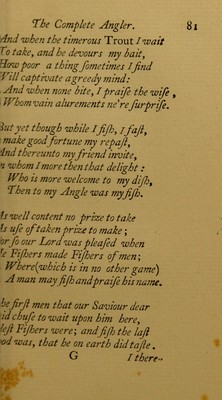 The Complete Angler. 81
And when the timerous Trout I wait
To take, and he devours my bait,
How poor a thing sometimes I find
Will captivate a greedy mind:
And when none bite, I praise the wise,
Whom vain alurements ne're surprise.
But yet though while I fish, I fast,
make good fortune my repast,
And thereunto my friend invite,
n whom I more then that delight:
Who is more welcome to my dish,
Then to my Angle was my fish.
As well content no prize to take
As use of taken prize to make;
or so our Lord was pleased when
He Fishers made Fishers of men;
Where (which is in no other game)
A man may fish and praise his name.
he first men that our Saviour dear
id chuse to wait upon him here,
lest Fishers were; and fish the last
od was, that he on earth did taste.
G I there-